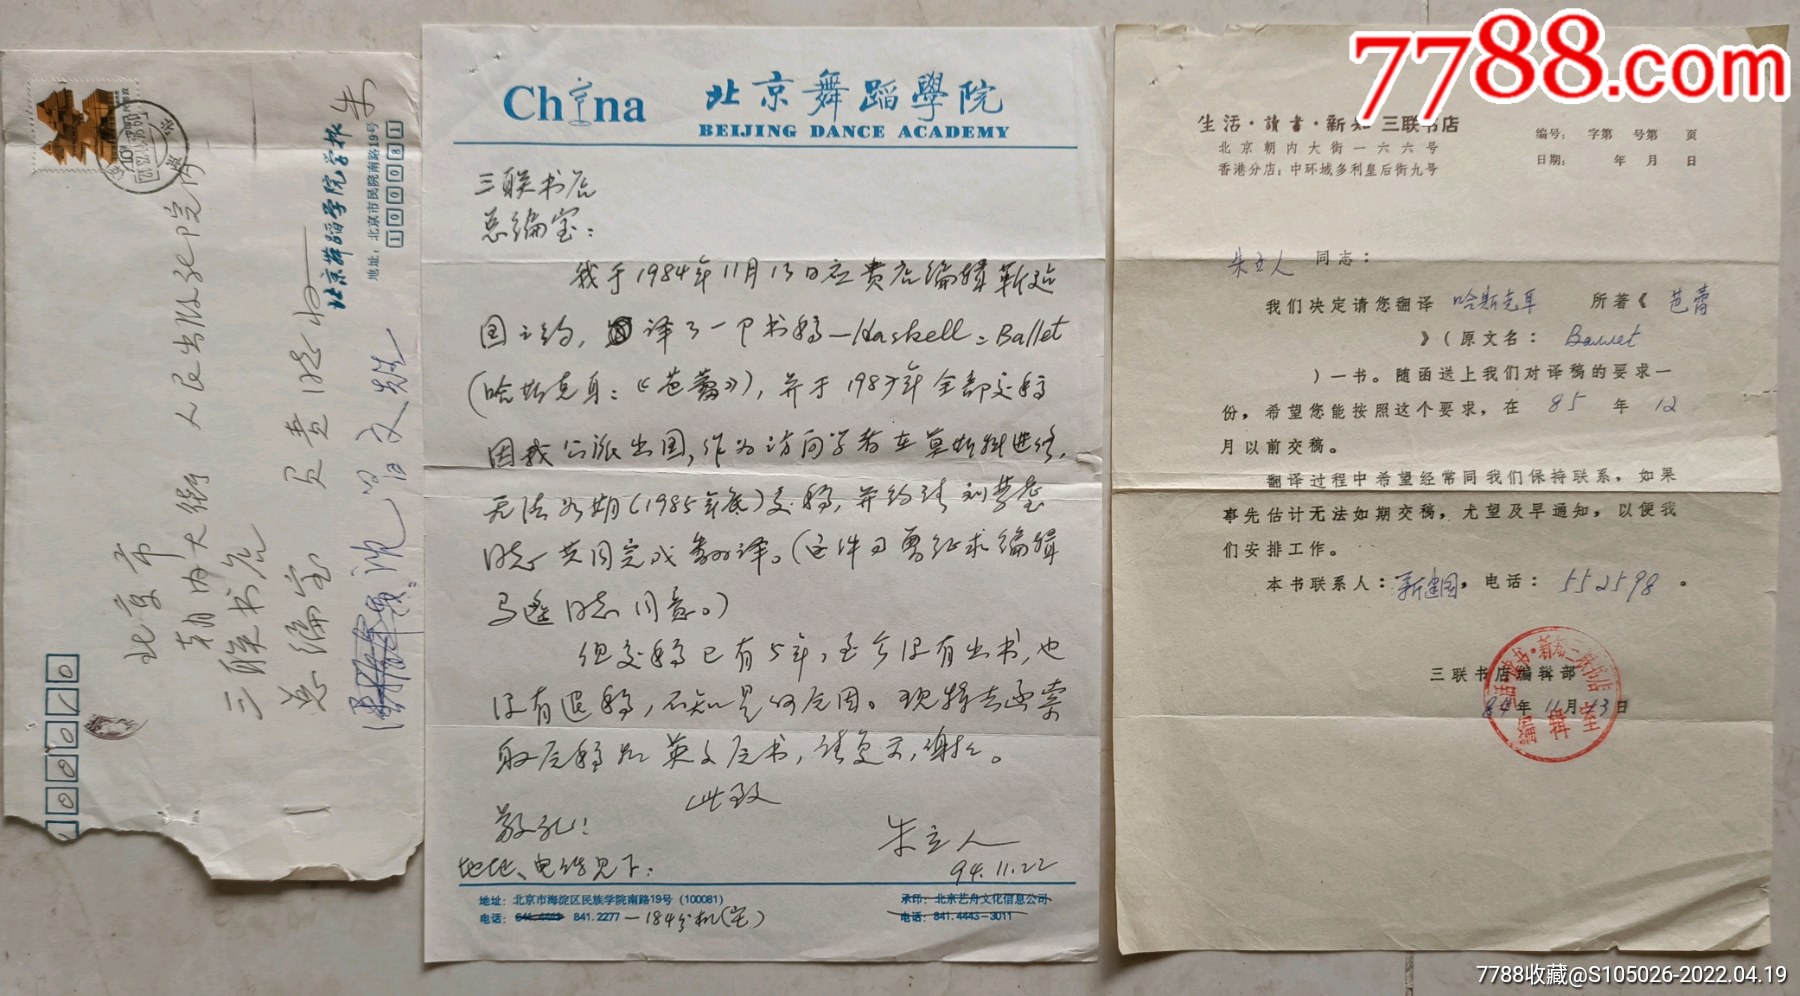 7788.com
朱
北京舞蹈学院学报
地址：北京市民院南路19号
100081
北京市
朝内大街
人民出版社院内
三联书店
总编室
负责同志
沈昌文
China
北京舞蹈學院
BEIJING DANCE ACADEMY
三联书店
总编室：
我于1984年11月13日应贵店编辑靳建
国之约，译了一部书稿—Haskell：Ballet
(哈斯克耳：《芭蕾》)，并于1989年全部交稿
因我公派出国，作为访问学者在莫斯科进修，
无法如期(1985年底)交稿，并约请刘梦耋
同志共同完成翻译。(这件事曾征求编辑
马遥同志同意。)
但交稿已有5年，至今没有出书，也
没有退稿，不知是何原因。现特去函索
取原稿及英文原书，请复示，谢谢。
此致
敬礼！
朱立人
94.11.22
地址、电话见下：
地址：北京市海淀区民族学院南路19号 (100081)
电话：841.4423 841.2277 —184分机(宅)
承印：北京艺舟文化信息公司
电话：841.4443-3011
生活·讀書·新知 三联书店
北京朝内大街一六六号
香港分店：中环域多利皇后街九号
编号： 字第 号第 页
日期： 年 月 日
朱立人 同志：
我们决定请您翻译 哈斯克耳 所著《 芭蕾
》（原文名： Ballet
）一书。随函送上我们对译稿的要求一
份，希望您能按照这个要求，在 85 年 12
月以前交稿。
翻译过程中希望经常同我们保持联系，如果
事先估计无法如期交稿，尤望及早通知，以便我
们安排工作。
本书联系人：靳建国，电话： 552598 。
三联书店编辑部
84年11月13日
生活·读书·新知三联书店
编辑室
7788收藏@S105026-2022.04.19